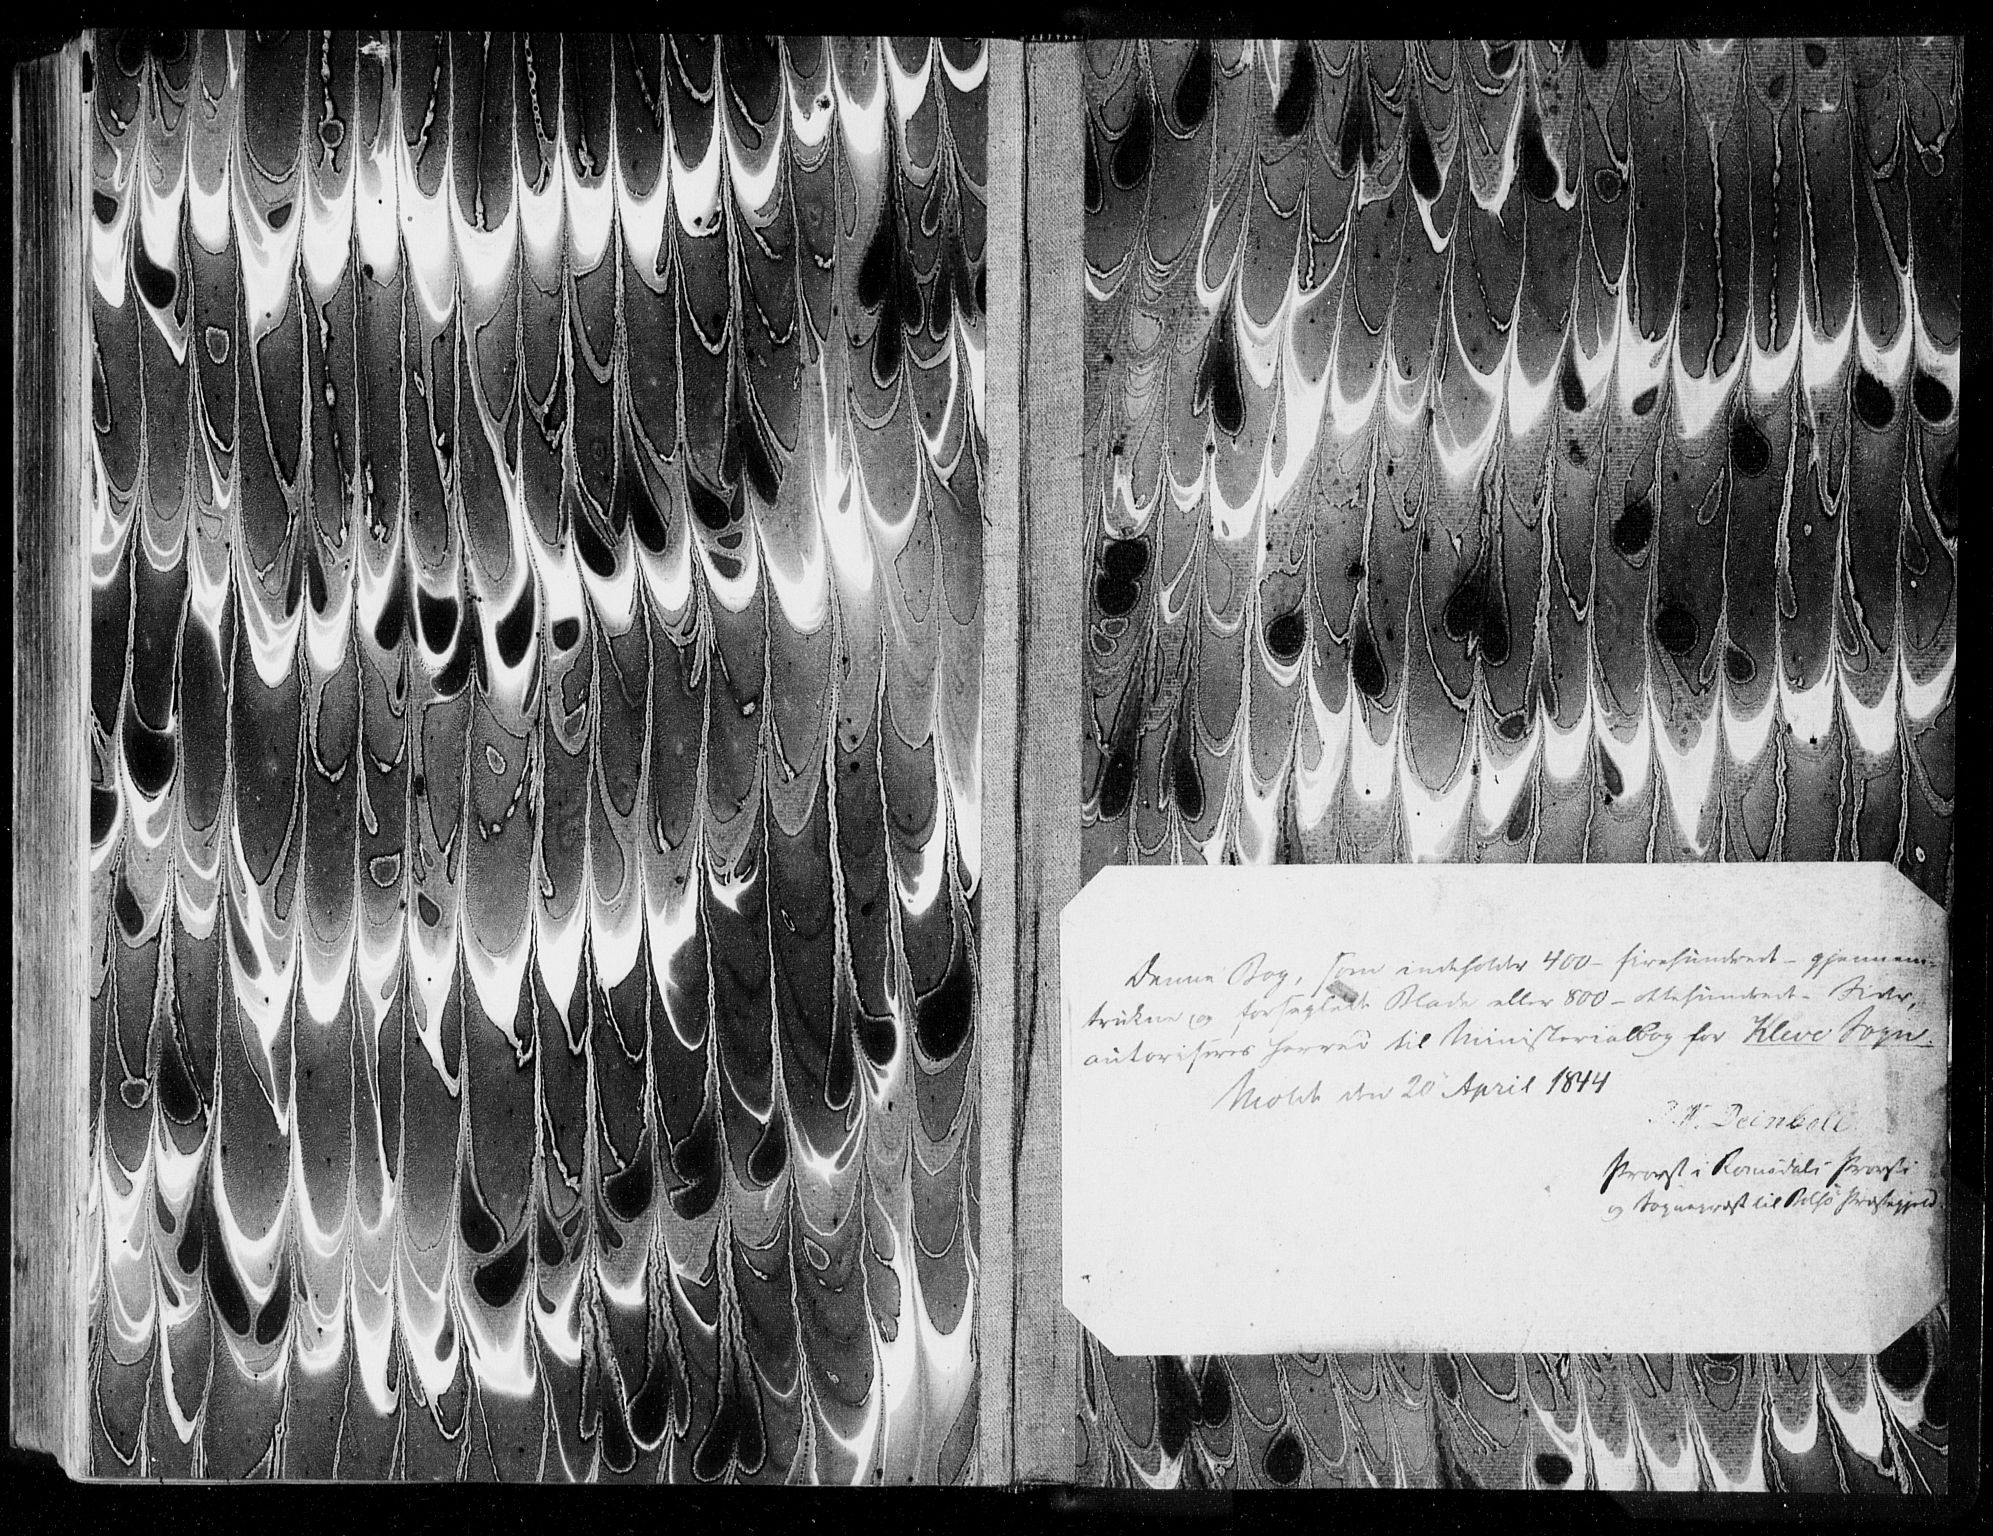 Denne Bog, som indeholder 400 - firehundrede - gjennem-
trukne og forseglede Blade eller 800 - ottehundrede - Sider,
autoriseres herved til Ministerialbog for Kleve Sogn.
Molde den 20 April 1844
P. W. Deinboll
Provst i Romsdals Provsti
og Sognepræst til Bolsø Præstegjeld